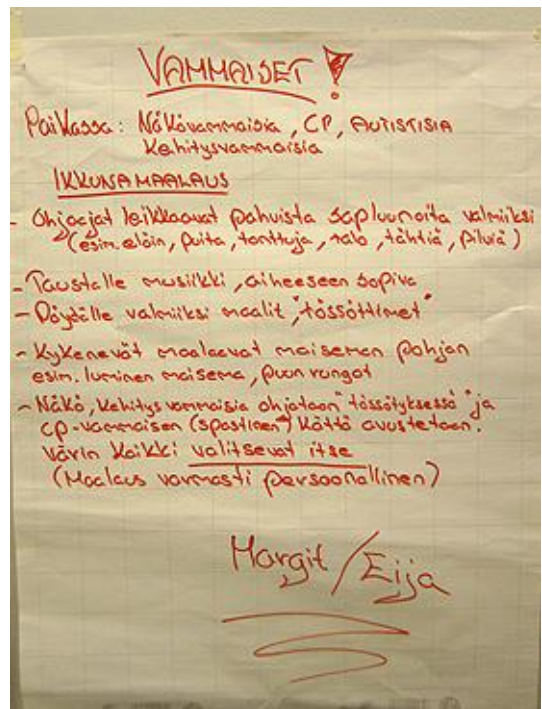 VAMMAISET !
Paikassa: Näkövammaisia, CP, AUTISTISIA
Kehitysvammaisia
IKKUNAMAALAUS
- Ohjaajat leikkaavat pahvista sapluunoita valmiiksi
(esim. eläin, puita, tonttuja, talo, tähtiä, pilviä)
- Taustalle musiikki, aiheeseen sopiva
- Pöydälle valmiiksi maalit, "tössöttimet"
- Kykenevät maalaavat maiseman pohjan
esim. luminen maisema, puun rungot
- Näkö, kehitysvammaisia ohjataan "tössötyksessä" ja
CP-vammaisen (spastinen) kättä avustetaan.
Värin kaikki valitsevat itse
(Maalaus varmasti persoonallinen)
Margit/Eija